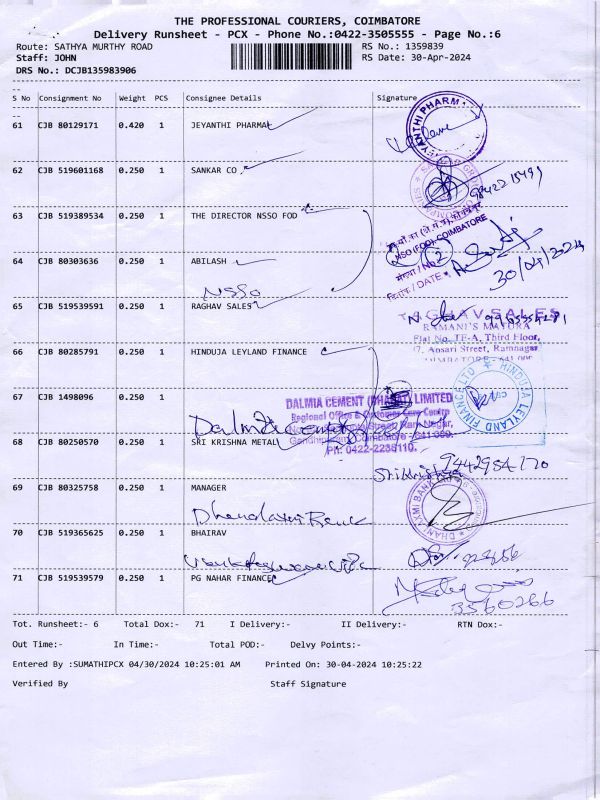 THE PROFESSIONAL COURIERS, COIMBATORE
Delivery Runsheet - PCX - Phone No.:0422-3505555 - Page No.:6
Route: SATHYA MURTHY ROAD
RS No.: 1359839
Staff: JOHN
RS Date: 30-Apr-2024
DRS No.: DCJB135983906
S No Consignment No Weight PCS Consignee Details Signature
61 CJB 80129171 0.420 1 JEYANTHI PHARMA
JEYANTHI PHARM
62 CJB 519601168 0.250 1 SANKAR CO
63 CJB 519389534 0.250 1 THE DIRECTOR NSSO FOD
NSSO (FOD), COIMBATORE
64 CJB 80303636 0.250 1 ABILASH
/ DATE
30/04/2024
NSSO
65 CJB 519539591 0.250 1 RAGHAV SALES
RAGHAV SALES
RAMANI'S MAYURA
Flat No. TF-A, Third Floor,
17, Ansari Street, Ramnagar
66 CJB 80285791 1 0.250 HINDUJA LEYLAND FINANCE
HINDUJA LEYLAND FINANCE LTD
67 CJB 1498096 0.250 1
DALMIA CEMENT (BHARAT) LIMITED
Regional Office & Customer Care Centre
Dalmia cement
68 CJB 80250570 0.250 1 SRI KRISHNA METAL
Ph: 0422-2236110.
9442984170
69 CJB 80325758 0.250 1 MANAGER
Dhanalaxmi Bank
DHANLAXMI BANK Ltd
70 CJB 519365625 0.250 1 BHAIRAV
71 CJB 519539579 0.250 1 PG NAHAR FINANCE
3560266
Tot. Runsheet:- 6 Total Dox:- 71 I Delivery:- II Delivery:- RTN Dox:-
Out Time:- In Time:- Total POD:- Delvy Points:-
Entered By :SUMATHIPCX 04/30/2024 10:25:01 AM Printed On: 30-04-2024 10:25:22
Verified By Staff Signature